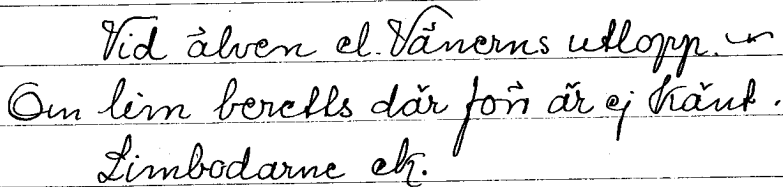 Vid älven el. Vänerns utlopp.
Om lim beretts där förr är ej känt.
Limbodarne ek.